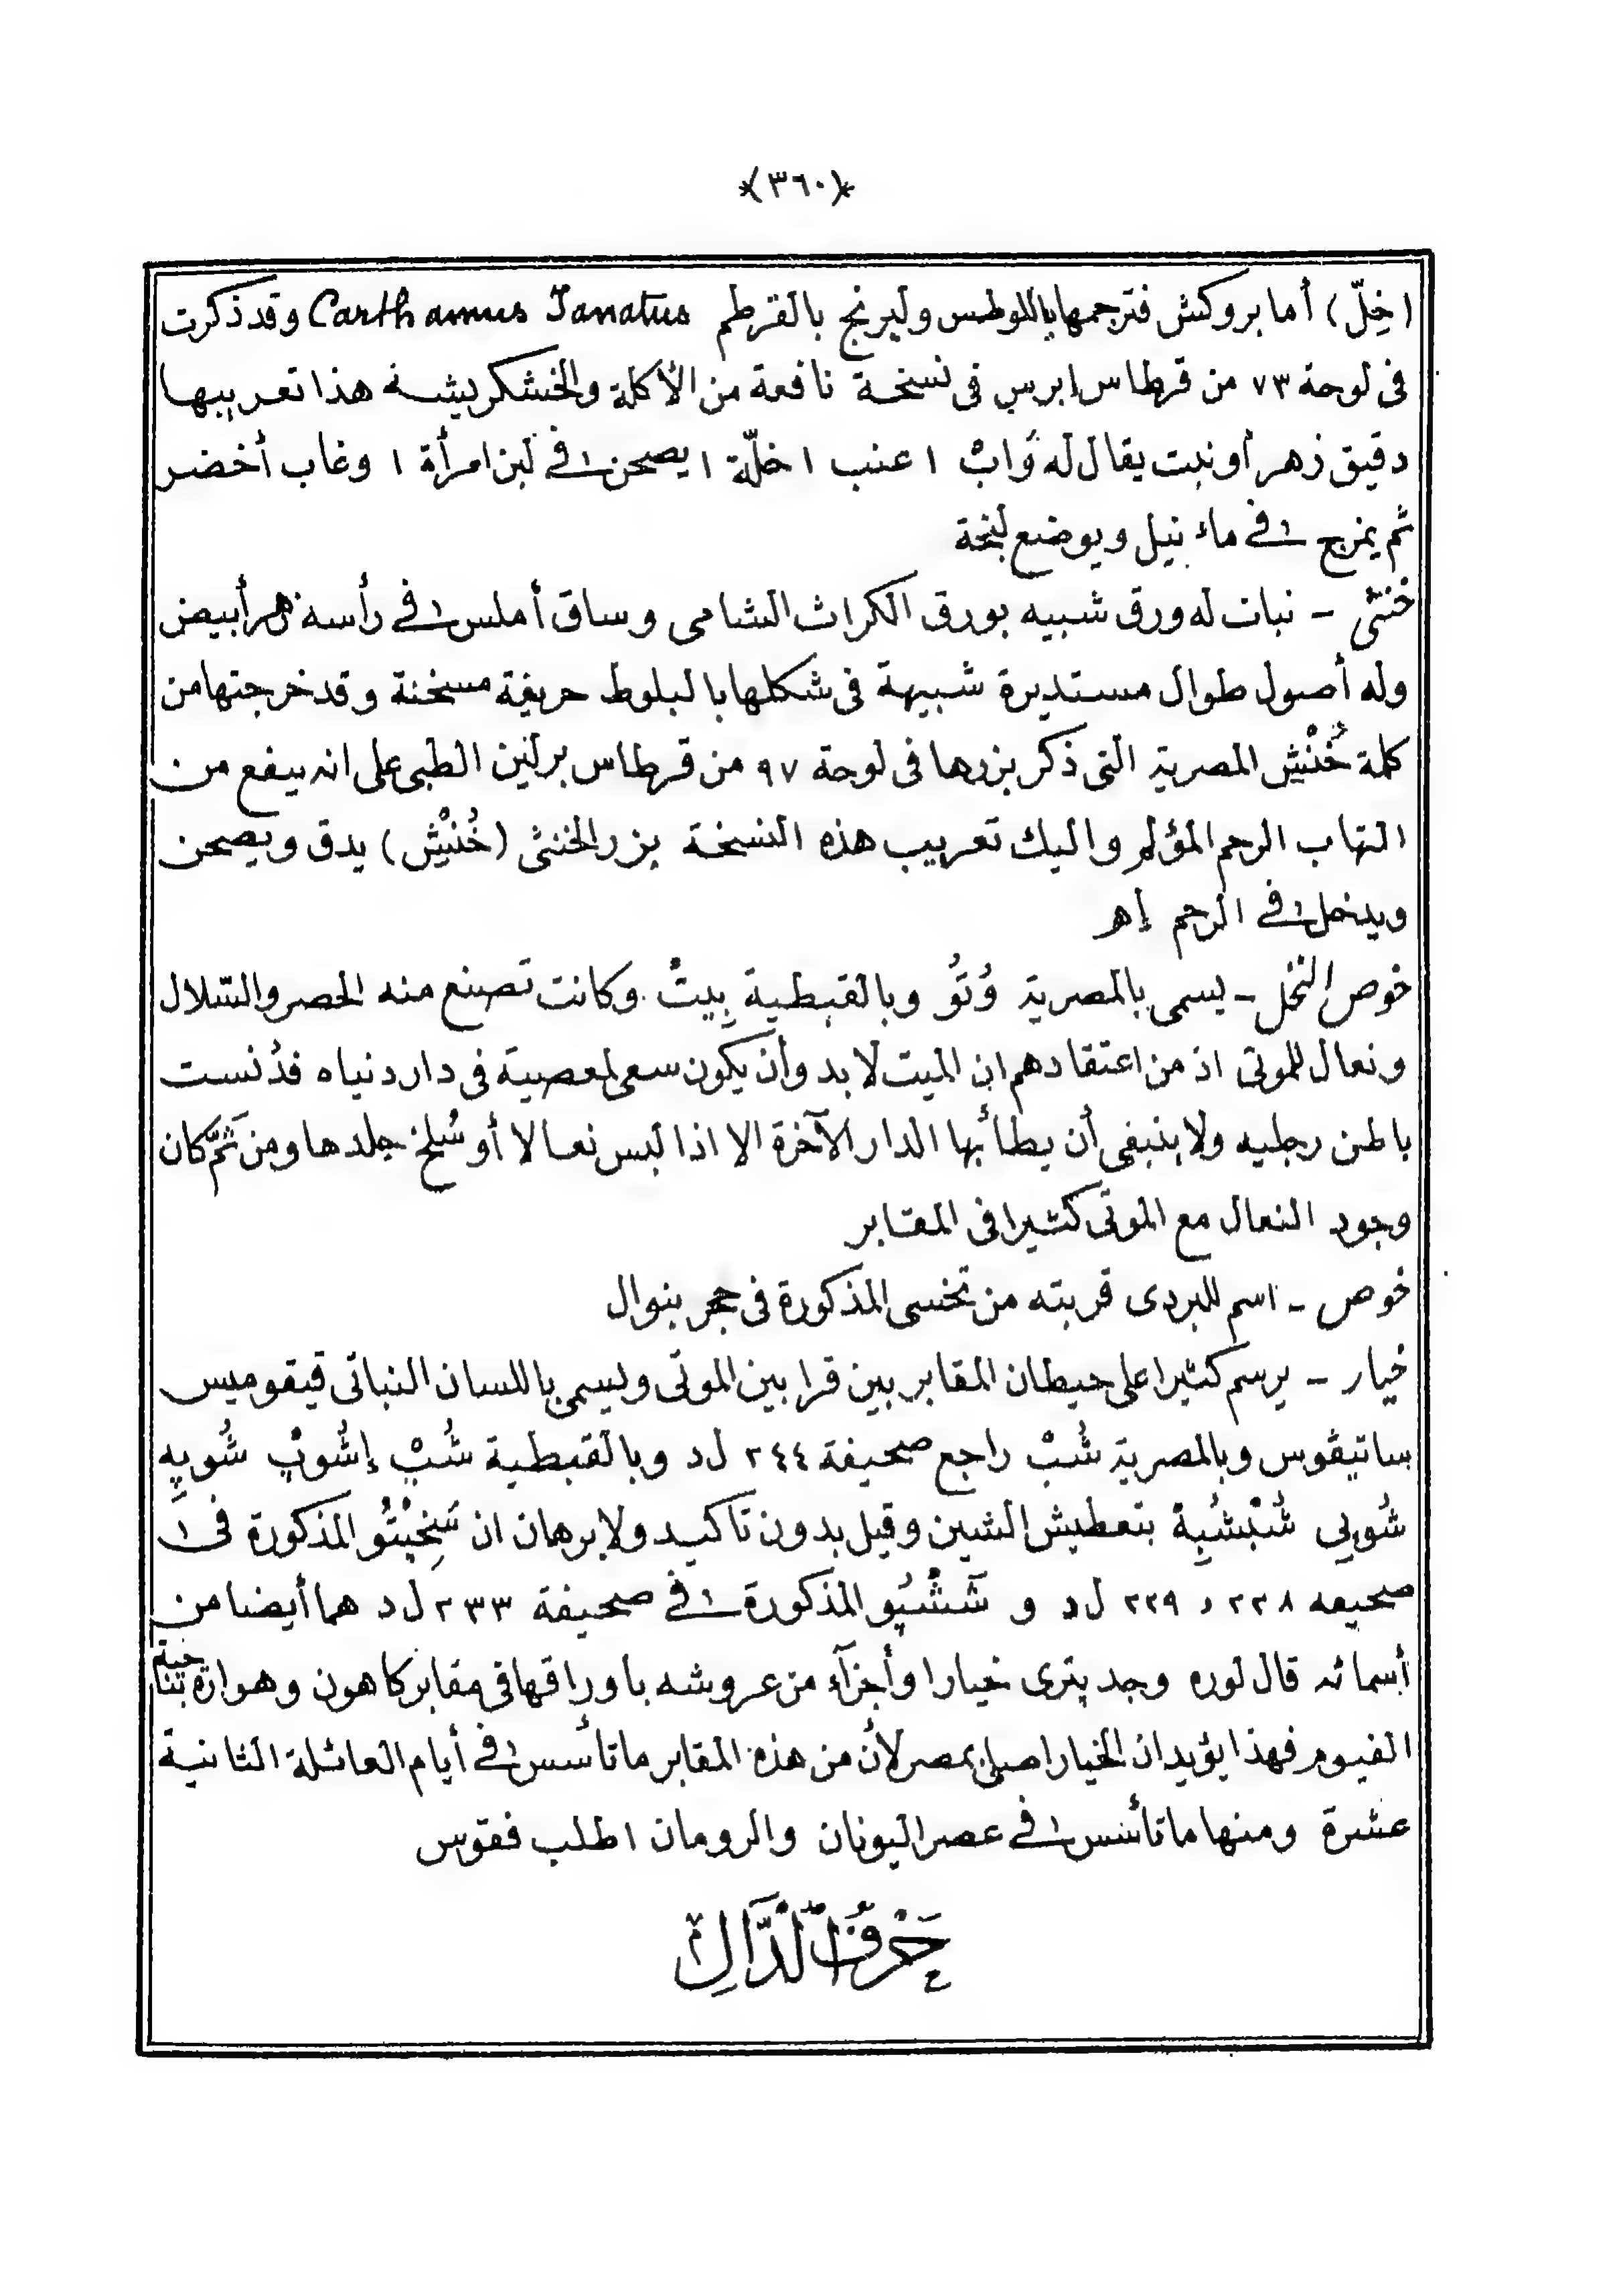 *(٣٦٠)*
(خِلّ) أما بروكش فترجمها باللوطس وليرنج بالقرطم Carthamus Tanatus وقد ذكرت
فى لوحة ٧٣ من قرطاس إبرس فى نسخة نافعة من الأكلة والخشكريشه هذا تعريبها
دقيق زهر أو نبت يقال له وَابْ ١ عنب ١ خلّة ١ يصحن فى لبن امرأة ١ وغاب أخضر
ثم يمزج فى ماء نيل ويوضع لبخة
خنثى - نبات له ورق شبيه بورق الكراث الشامى وساق أملس فى رأسه زهر أبيض
وله أصول طوال مستديرة شبيهة فى شكلها بالبلوط حريفة مسخنة وقد خرجتها من
كلمة خُنْتِشْ المصرية التى ذكر بزرها فى لوحة ٩٧ من قرطاس برلين الطبى على انه ينفع من
التهاب الرحم المؤلم واليك تعريب هذه النسخة بزر الخنثى (خُنْتِشْ) يدق ويصحن
ويدخل فى الرحم إهـ
خوص النخل - يسمى بالمصرية وُتُو وبالقبطية بِيتْ وكانت تصنع منه الحصر والسّلال
ونعال للموتى اذ من اعتقادهم ان الميت لا بد وأن يكون سعى لمعصية فى دار دنياه فدُنست
باطن رجليه ولا ينبغى أن يطأ بها الدار الآخرة الا اذا لبس نعالا أو سُلخ جلدها ومن ثَمَّ كان
وجود النعال مع الموتى كثيرا فى المقابر
خوص - اسم للبردى قربته من تخسى المذكورة فى حجر بنوال
خيار - يرسم كثيرا على حيطان المقابر بين قرابين الموتى ويسمى باللسان النباتى قيقوميس
ساتيڤوس وبالمصرية شُبْ راجع صحيفة ٢٤٤ ل د وبالقبطية شُپْ إشُوپْ شُوپِه
شُوبى شُبْشُبِة بتعطيش الشين وقيل بدون تأكيد ولا برهان ان سَخِپْتُو المذكورة فى
صحيفه ٢٢٨ و ٢٢٩ ل د و شَشْپُو المذكورة فى صحيفة ٢٣٣ ل د هما أيضا من
أسمائه قال لوره وجد پترى خيارا وأجزآء من عروشه بأوراقها فى مقابر كاهون وهوارة بناحية
الفيوم فهذا يؤيد ان الخيار اصلى بمصر لأن من هذه المقابر ما تأسس فى أيام العائلة الثانية
عشرة ومنها ما تأسس فى عصر اليونان والرومان اطلب فقوس
حَرْفُ الدَّالِ